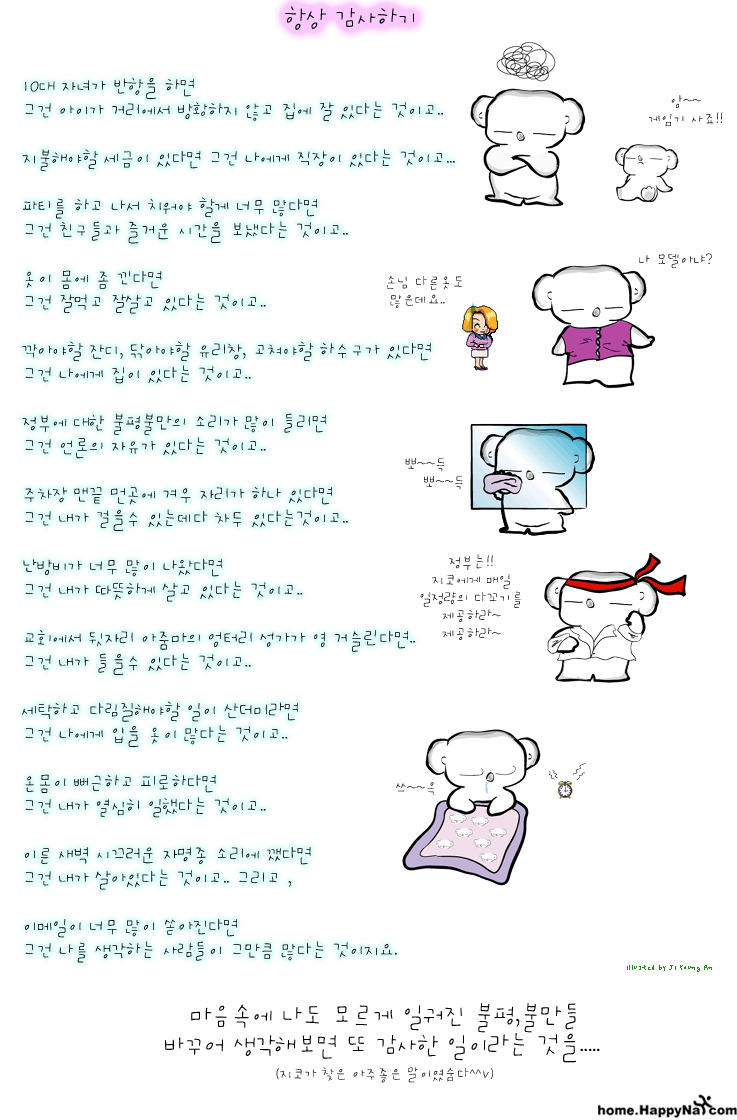 항상 감사하기
10대 자녀가 반항을 하면
그건 아이가 거리에서 방황하지 않고 집에 잘 있다는 것이고..
지불해야할 세금이 있다면 그건 나에게 직장이 있다는 것이고...
파티를 하고 나서 치워야 할게 너무 많다면
그건 친구들과 즐거운 시간을 보냈다는 것이고..
옷이 몸에 좀 낀다면
그건 잘먹고 잘살고 있다는 것이고..
깍아야할 잔디, 닦아야할 유리창, 고쳐야할 하수구가 있다면
그건 나에게 집이 있다는 것이고..
정부에 대한 불평불만의 소리가 많이 들리면
그건 언론의 자유가 있다는 것이고..
주차장 맨끝 먼곳에 겨우 자리가 하나 있다면
그건 내가 걸을수 있는데다 차두 있다는것이고..
난방비가 너무 많이 나왔다면
그건 내가 따뜻하게 살고 있다는 것이고..
교회에서 뒷자리 아줌마의 엉터리 성가가 영 거슬린다면..
그건 내가 들을수 있다는 것이고..
세탁하고 다림질해야할 일이 산더미라면
그건 나에게 입을 옷이 많다는 것이고..
온몸이 뻐근하고 피로하다면
그건 내가 열심히 일했다는 것이고..
이른 새벽 시끄러운 자명종 소리에 깼다면
그건 내가 살아있다는 것이고.. 그리고 ,
이메일이 너무 많이 쏟아진다면
그건 나를 생각하는 사람들이 그만큼 많다는 것이지요.
앙~~
게임기 사죠!!
나 모델이야?
손님 다른옷도
많은데요..
뽀~~득
뽀~~득
정부는!!
지코에게 매일
일정량의 다꼬기를
제공하라~
제공하라~
쓰~~윽
illusted by Ji Young An
마음속에 나도 모르게 일궈진 불평,불만들
바꾸어 생각해보면 또 감사한 일이라는 것을.....
(지코가 찾은 아주좋은 말이였슴다^^v)
home.HappyNa.com